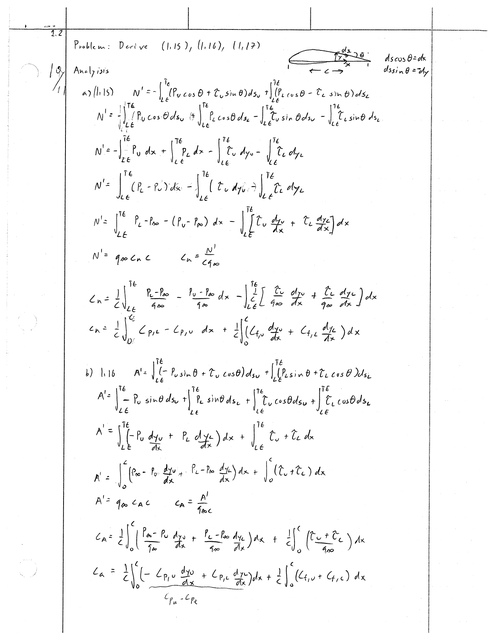 1.2
Problem: Derive (1.15), (1.16), (1.17)
ds θ
dscosθ=dx
dssinθ=-dy
← c →
10/1
Analysis
a) (1.15) N' = -∫_LE^TE (Pu cosθ + τu sinθ) dsu + ∫_LE^TE (PL cosθ - τL sinθ) dsL
N' = -∫_LE^TE Pu cosθ dsu + ∫_LE^TE PL cosθ dsL - ∫_LE^TE τu sinθ dsu - ∫_LE^TE τL sinθ dsL
N' = -∫_LE^TE Pu dx + ∫_LE^TE PL dx - ∫_LE^TE τu dyu - ∫_LE^TE τL dyL
N' = ∫_LE^TE (PL - Pu) dx - ∫_LE^TE (τu dyu + ∫_LE^TE τL dyL
N' = ∫_LE^TE PL - P∞ - (Pu - P∞) dx - ∫_LE^TE [τu dyu/dx + τL dyL/dx] dx
N' = q∞ c Cn Cn = N'/cq∞
Cn = 1/c ∫_LE^TE PL-P∞/q∞ - Pu-P∞/q∞ dx - ∫_LE^TE 1/c [τu/q∞ dyu/dx + τL/q∞ dyL/dx] dx
Cn = 1/c ∫_0^c Cp,L - Cp,u dx + 1/c ∫_0^c (Cf,u dyu/dx + Cf,L dyL/dx) dx
b) 1.16 A' = ∫_LE^TE (-Pu sinθ + τu cosθ) dsu + ∫_LE^TE (PL sinθ + τL cosθ) dsL
A' = ∫_LE^TE -Pu sinθ dsu + ∫_LE^TE PL sinθ dsL + ∫_LE^TE τu cosθ dsu + ∫_LE^TE τL cosθ dsL
A' = ∫_LE^TE (-Pu dyu/dx + PL dyL/dx) dx + ∫_LE^TE τu + τL dx
A' = ∫_0^c (P∞ - Pu dyu/dx + PL - P∞ dyL/dx) dx + ∫_0^c (τu + τL) dx
A' = q∞ CA c CA = A'/q∞c
CA = 1/c ∫_0^c (P∞-Pu/q∞ dyu/dx + PL-P∞/q∞ dyL/dx) dx + 1/c ∫_0^c (τu+τL/q∞) dx
Ca = 1/c ∫_0^c (-Cp,u dyu/dx + Cp,L dyL/dx) dx + 1/c ∫_0^c (Cf,u + Cf,L) dx
Cpu - CpL